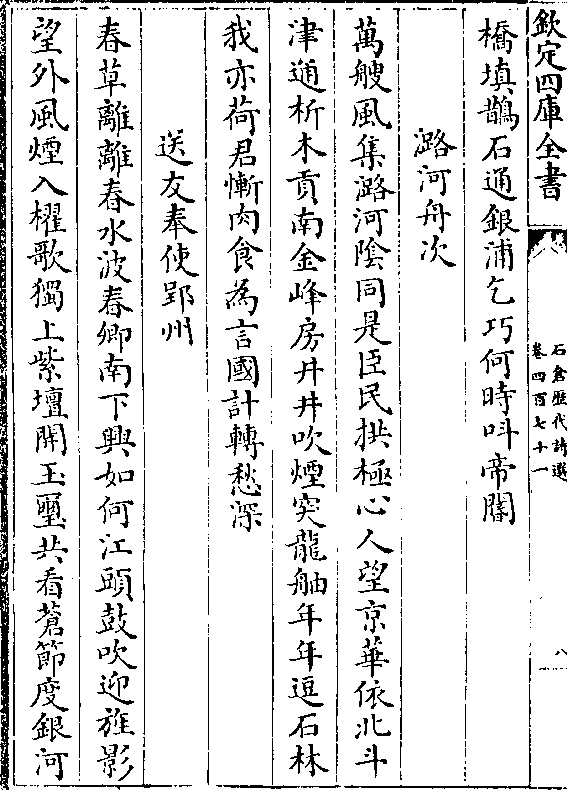 欽定四庫全書
石倉歴代詩選
卷四百七十一
八
橋填鵲石通銀浦乞巧何時叫帝閽
潞河舟次
萬艘風集潞河陰同是臣民拱極心人望京華依北斗
津通析木貢南金峰房井井吹煙突龍舳年年逗石林
我亦荷君慚肉食為言國計轉愁深
送友奉使郢州
春草離離春水波春卿南下興如何江頭鼓吹迎旌影
望外風煙入櫂歌獨上紫壇開玉璽共看蒼節度銀河